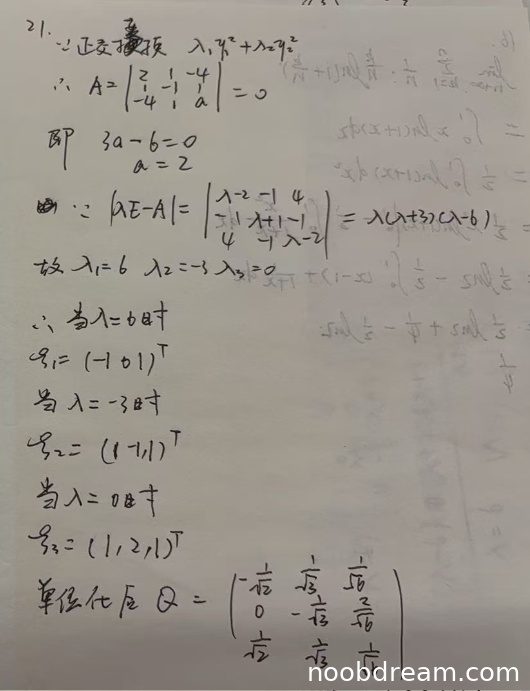 21.
∵正交换项 λ₁y₁²+λ₂y₂²
∴ A=|2 1 -4
1 -1 1
-4 1 a|=0
即 3a-6=0
a=2
∵ |λE-A|=|λ-2 -1 4
-1 λ+1 -1
4 -1 λ-2|=λ(λ+3)(λ-6)
故 λ₁=6 λ₂=-3 λ₃=0
∴ 当λ=6时
ξ₁=(-1 0 1)ᵀ
当λ=-3时
ξ₂=(1 -1, 1)ᵀ
当λ=0时
ξ₃=(1,2,1)ᵀ
单位化后 Q=(-1/√2 1/√3 1/√6
0 -1/√3 2/√6
1/√2 1/√3 1/√6)
noobdream.com